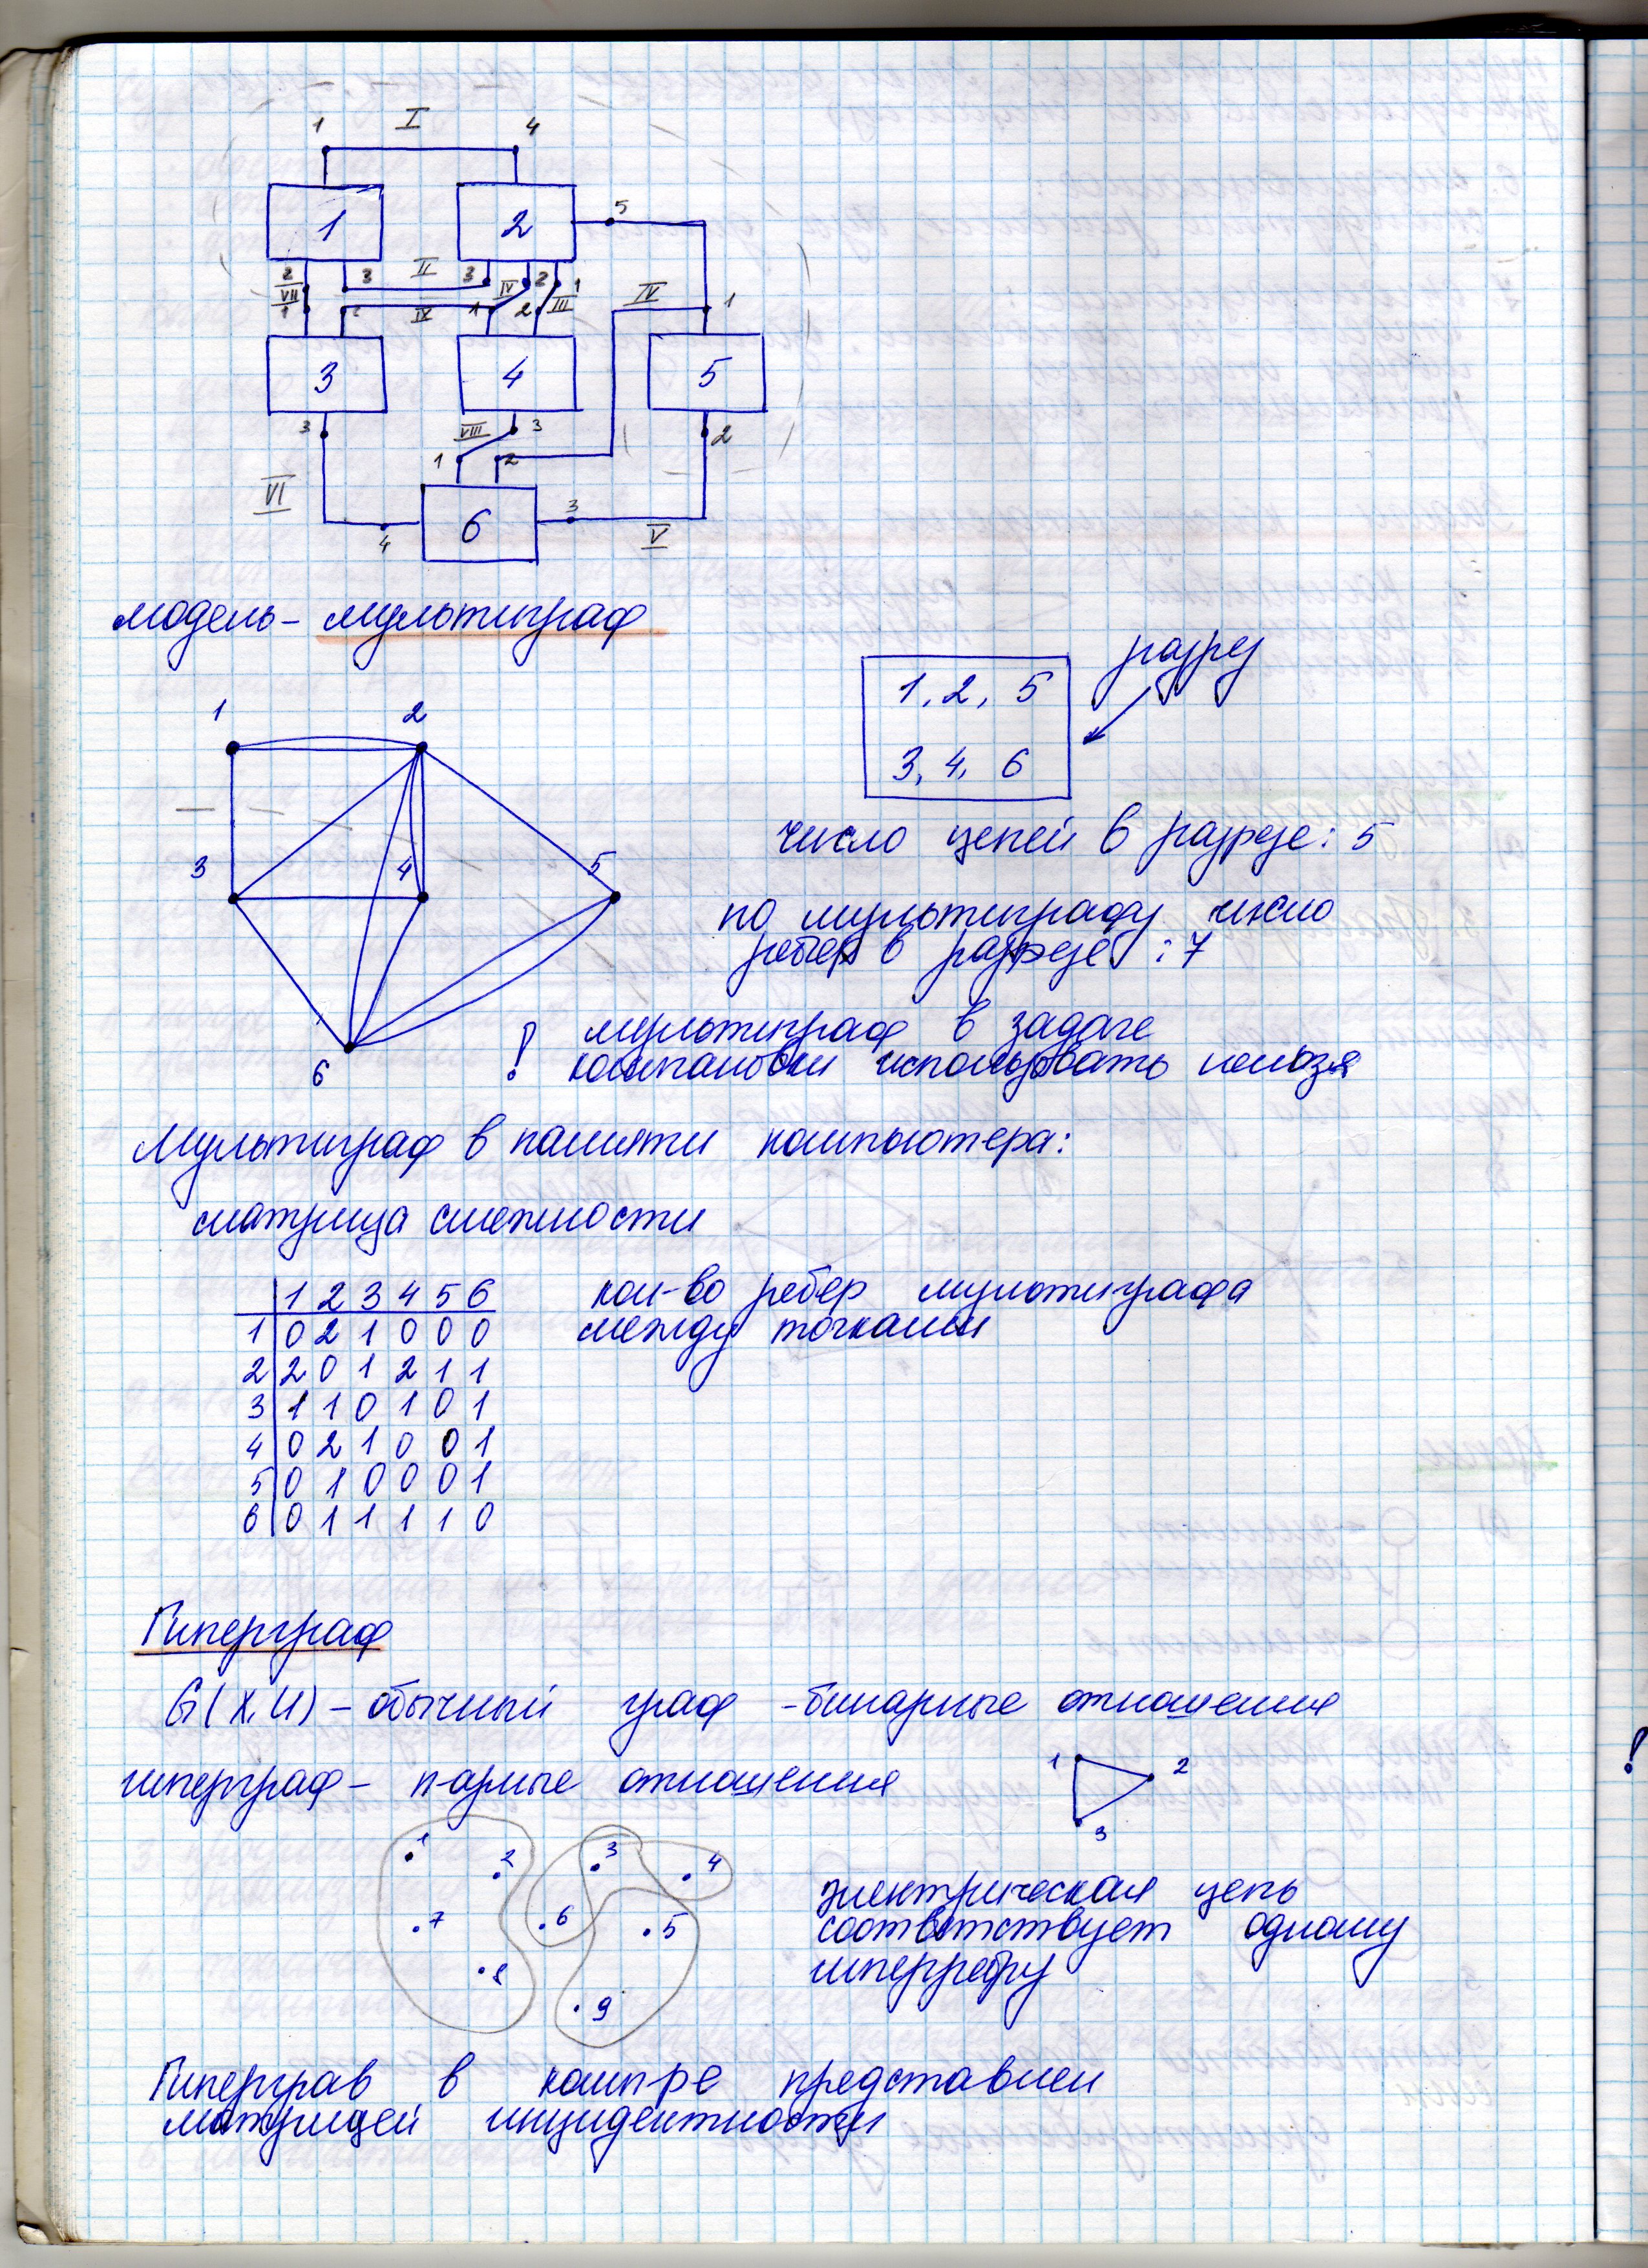 1 I 4
1 2 5
2 3 II 3 IV 2 1 IV
VII III
1 2 IX 1 2 1
3 4 5
3 VIII 3 2
1 2
VI
6 3
4 V
модель - мультиграф
разрез
1, 2, 5
3, 4, 6
1 2
3 4 5
6
число цепей в разрезе: 5
по мультиграфу число
ребер в разрезе : 7
! мультиграф в задаче
компановки использовать нельзя
Мультиграф в памяти компьютера:
матрица смежности
1 2 3 4 5 6
1 0 2 1 0 0 0
2 2 0 1 2 1 1
3 1 1 0 1 0 1
4 0 2 1 0 0 1
5 0 1 0 0 0 1
6 0 1 1 1 1 0
кол-во ребер мультиграфа
между точками
Гиперграф
G(X,U) - обычный граф - бинарные отношения
гиперграф - n-арные отношения
1 2
3
!
1 2 3 4
7 6 5
8
9
электрическая цепь
соответствует одному
гиперребру
Гиперграв в комп-ре представлен
матрицей инцидентности